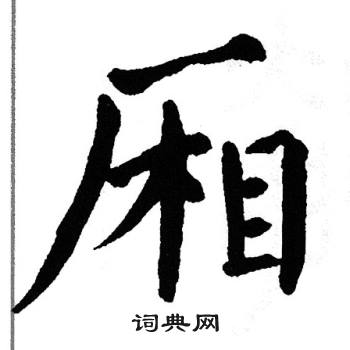 厢
词典网